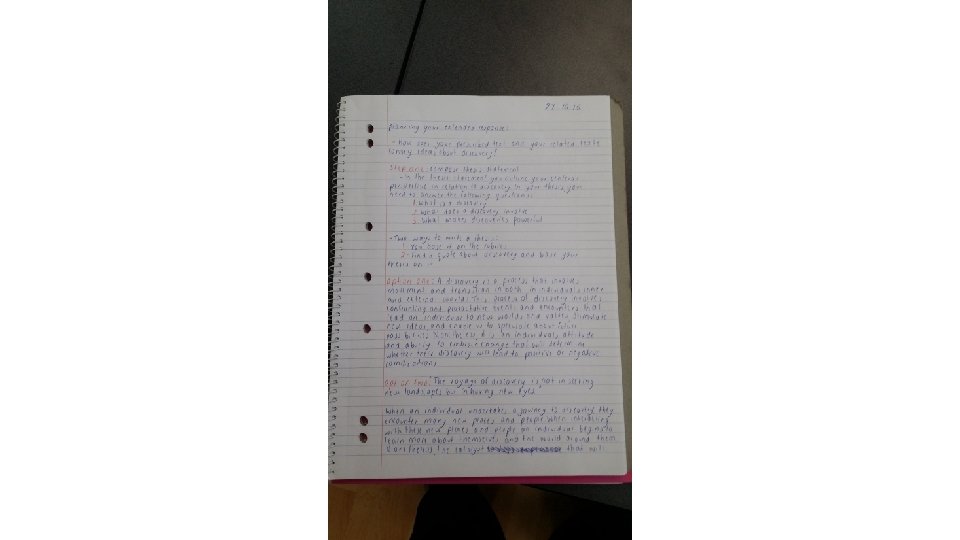 planning your extended response:
- How does your prescribed text and your related texts
convey ideas about discovery?
Step one: compose thesis statement
- In the thesis statement you outline your central
perspective in relation to discovery. In your thesis, you
need to answer the following questions:
1. What is a discovery
2. What does a discovery involve
3. What makes discoveries powerful
- Two ways to write a thesis:
1. You base it on the rubric
2. Find a quote about discovery and base your
thesis on it
Option One: A discovery is a process that involves
movement and transition in both in individuals inner
and external worlds. This process of discovery involves
confronting and provocative events and encounters that
lead an individual to new worlds and values, stimulate
new ideas, and enable us to speculate about future
possibilities. Nonetheless, it is an individuals attitude
and ability to embrace change that will determine
whether their discovery will lead to positive or negative
ramifications
Option Two: "The voyage of discovery is not in seeking
new landscapes but in having new eyes"
When an individual undertakes a journey to discovery they
encounter many new places and people. When interacting
with these new places and people an individual begins to
learn more about themselves and the world around them
the catalyst that will